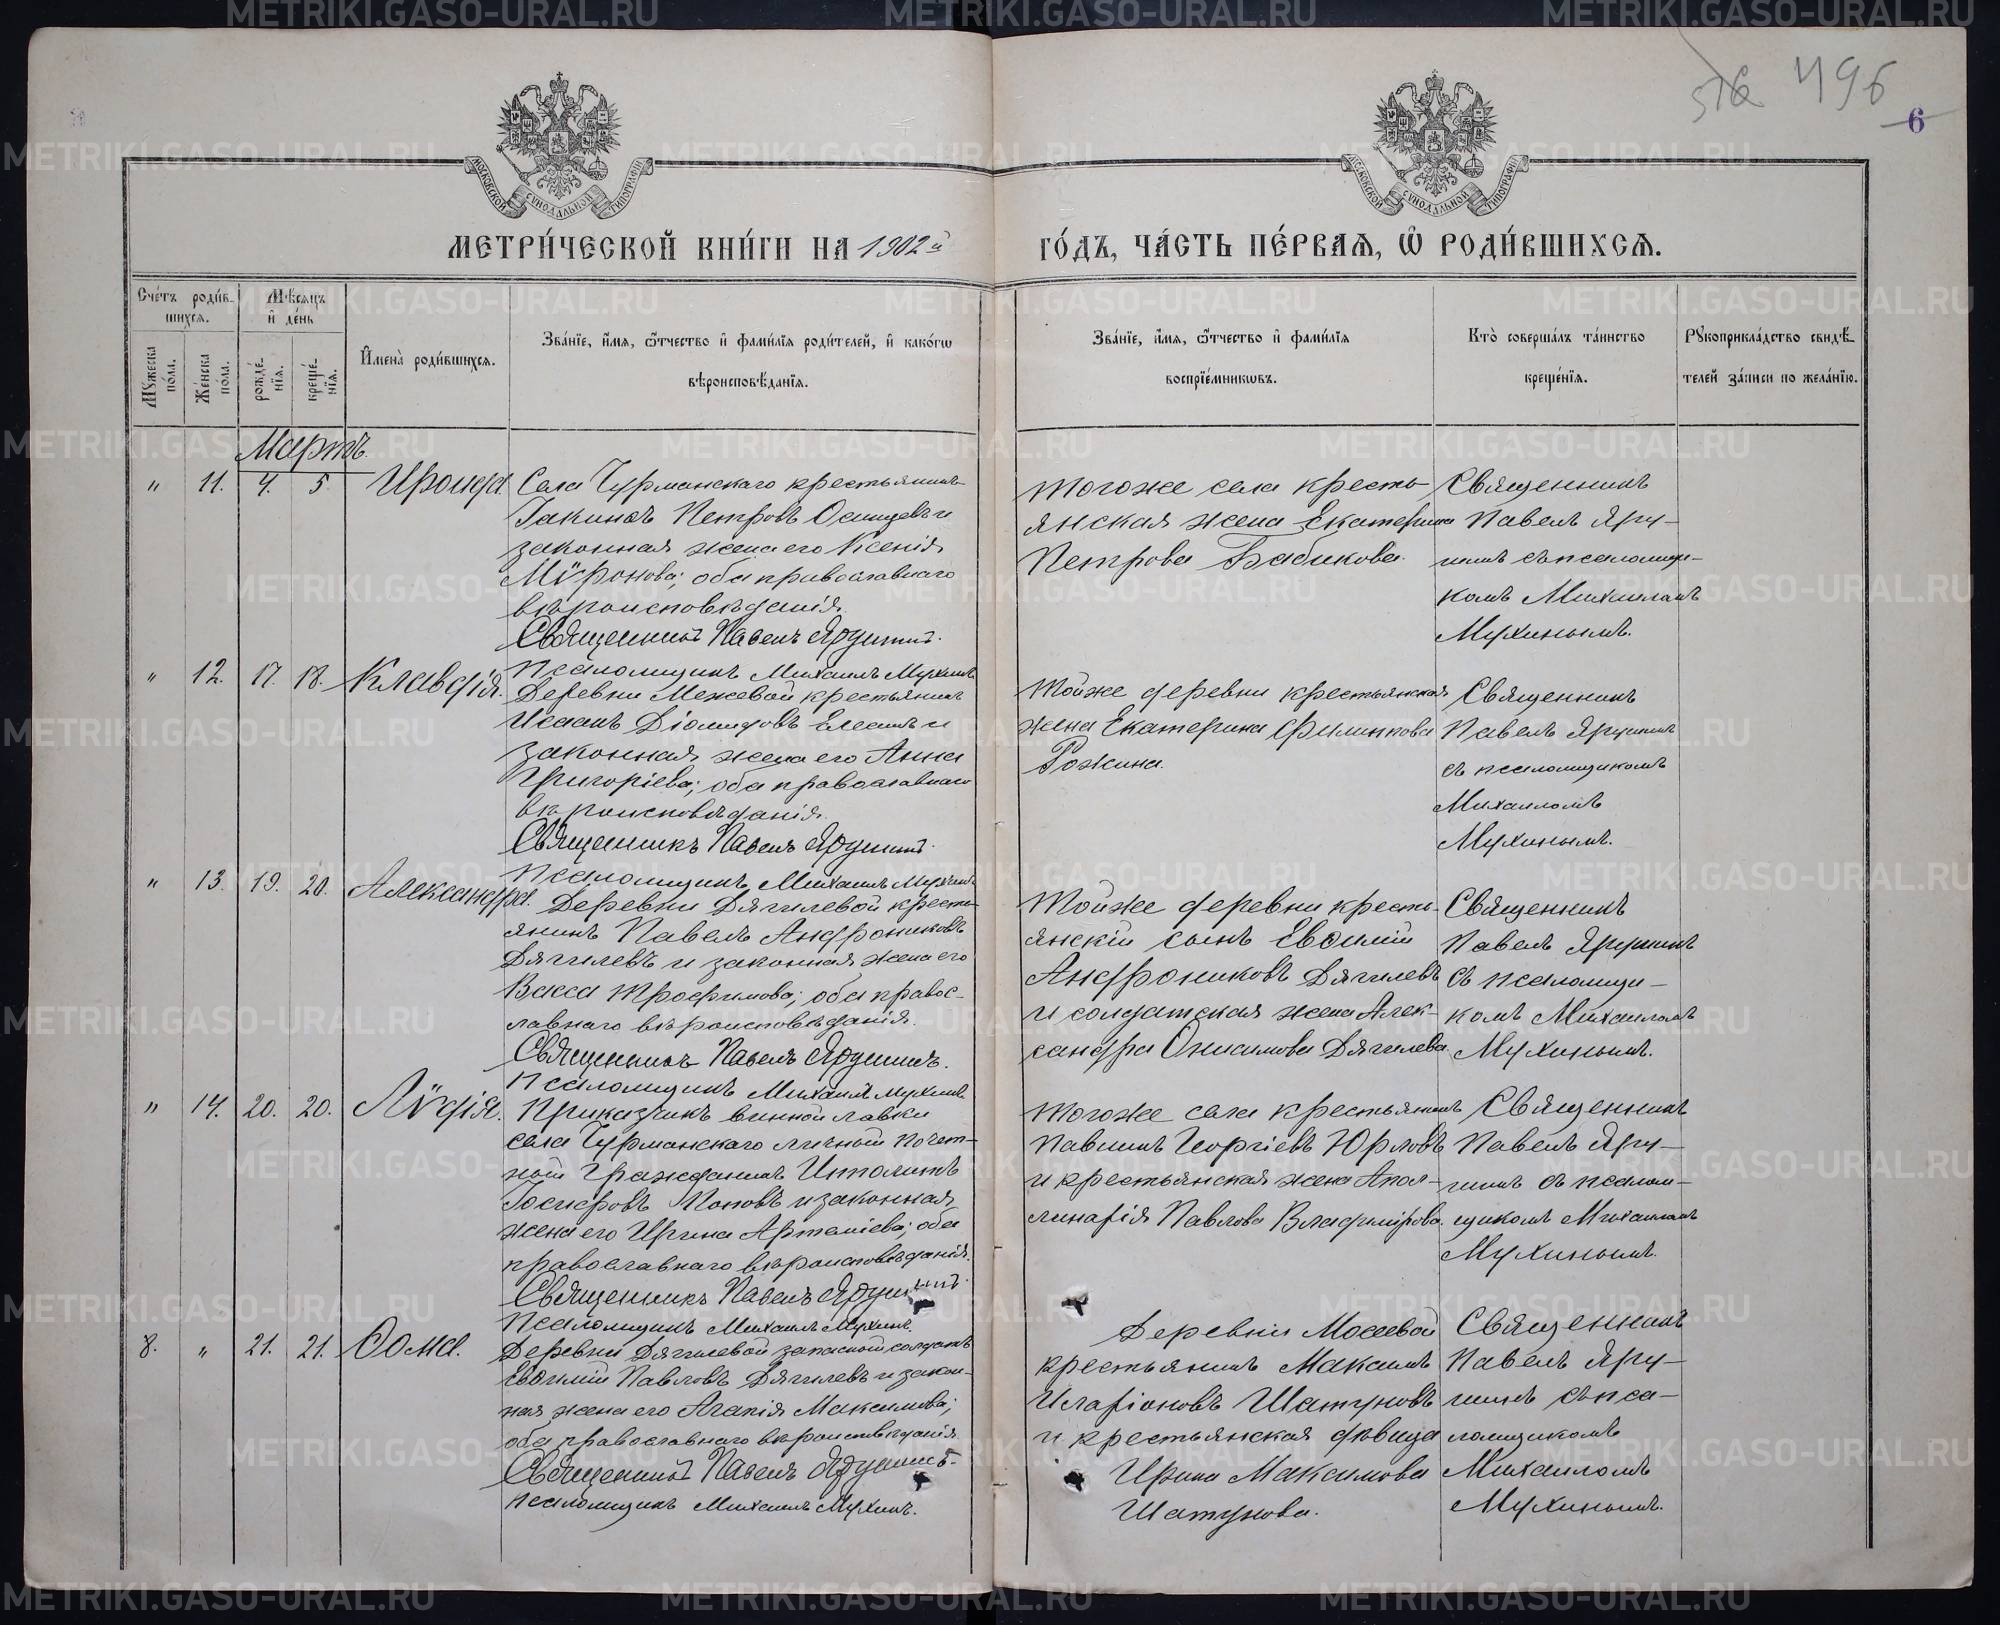 496
6
МОСКОВСКОЙ СѴНОДАЛЬНОЙ ТИПОГРАФІИ
МОСКОВСКОЙ СѴНОДАЛЬНОЙ ТИПОГРАФІИ
МЕТРИ́ЧЕСКОЙ КНИ́ГИ НА 1902й ГО́ДЪ, ЧА́СТЬ ПЕ́РВАѦ, Ѽ РОДИ́ВШИХСѦ.
Сче́тъ роди́в-
шихсѧ.
Мѣ́сѧцъ
и҆ де́нь
Мꙋ́жеска
по́ла.
Же́нска
по́ла.
рожде́-
нїѧ.
креще́-
нїѧ.
И҆мена̀ роди́вшихсѧ.
Зва́нїе, и҆́мѧ, ѻ҆́тчество и҆ фами́лїѧ роди́телей, и҆ како́гѡ
вѣроисповѣ́данїѧ.
Зва́нїе, и҆́мѧ, ѻ҆́тчество и҆ фами́лїѧ
воспрїе́мникѡвъ.
Кто̀ соверша́лъ та́инство
креще́нїѧ.
Рꙋкоприкла́дство свидѣ́-
телей за́писи по жела́нїю.
Мартъ.
" 11. 4. 5 Ироида.
Села Чурманскаго крестьянинъ
Іакинѳъ Петровъ Осинцевъ и
законная жена его Ксенія
Мѵронова; оба православнаго
вѣроисповѣданія.
Священникъ Павелъ Яргинъ.
Псаломщикъ Михаилъ Мухинъ
тогоже села кресть-
янская жена Екатерина
Петрова Бабикова.
Священникъ
Павелъ
съ псаломщи-
комъ Михаиломъ
Мухинымъ.
" 12. 17. 18. Клавдія.
Деревни Межевой крестьянинъ
Исаакъ Діомидовъ и
законная жена его Анна
Григоріева; оба православнаго
вѣроисповѣданія.
Священникъ Павелъ
Псаломщикъ Михаилъ Мухинъ
тойже деревни крестьянская
жена Екатерина Филиппова
Рожина.
Священникъ
Павелъ
съ псаломщикомъ
Михаиломъ
Мухинымъ.
" 13. 19. 20. Александра.
Деревни Дягилевой кресть-
янинъ Павелъ Андрониковъ
Дягилевъ и законная жена его
Васса Трофимова; оба правос-
лавнаго вѣроисповѣданія.
Священникъ Павелъ
Псаломщикъ Михаилъ Мухинъ
Тойже деревни кресть-
янскій сынъ Евѳимій
Андрониковъ Дягилевъ
и солдатская жена Алек-
сандра Онисимова Дягилева.
Священникъ
Павелъ
съ псаломщи-
комъ Михаиломъ
Мухинымъ.
" 14. 20. 20. Лѵдія.
Приказчикъ винной лавки
села Чурманскаго личный почет-
ный гражданинъ Иполитъ
Іосифовъ Поповъ и законная
жена его Ирина Артеміева; оба
православнаго вѣроисповѣданія.
Священникъ Павелъ
Псаломщикъ Михаилъ Мухинъ.
тогоже села крестьянинъ
Павлинъ Георгіевъ Юрловъ
и крестьянская жена Апол-
линарія Павлова Владимірова.
Священникъ
Павелъ
съ псалом-
щикомъ Михаиломъ
Мухинымъ.
8. " 21. 21. Ѳома.
Деревни Дягилевой запасный солдатъ
Евѳимій Павловъ Дягилевъ и закон-
ная жена его Агапія Максимова;
оба православнаго вѣроисповѣданія.
Священникъ Павелъ
Псаломщикъ Михаилъ Мухинъ.
Деревни Мосеевой
крестьянинъ Максимъ
Иларіоновъ Шатуновъ
и крестьянская дѣвица
Ирина Максимова
Шатунова.
Священникъ
Павелъ
съ пса-
ломщикомъ
Михаиломъ
Мухинымъ.
METRIKI.GASO-URAL.RU